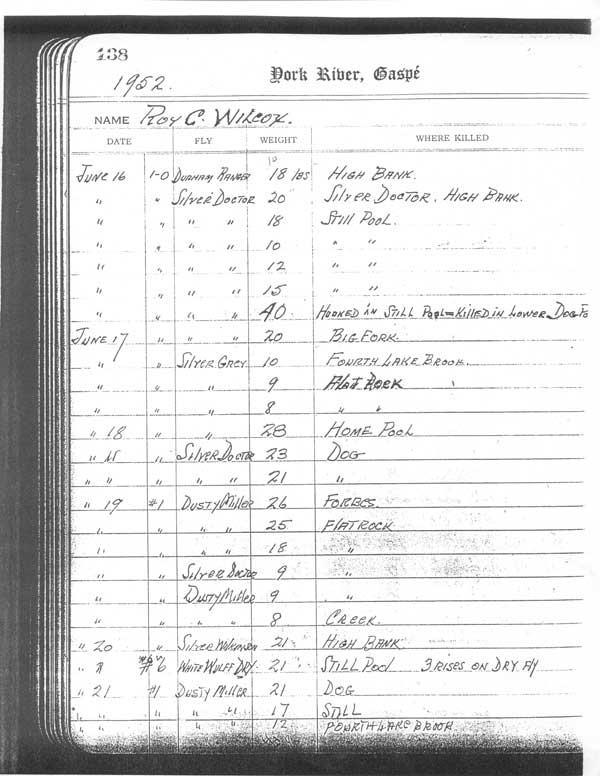 438
1952.
York River, Gaspé
NAME Roy C. Wilcox.
DATE FLY WEIGHT WHERE KILLED
June 16 1-0 Durham Ranger 18 lbs High Bank.
" " Silver Doctor 20 Silver Doctor, High Bank.
" " " " 18 Still Pool.
" " " " 10 " "
" " " " 12 " "
" " " " 15 " "
" " " " 40 Hooked in Still Pool = Killed in Lower Dog
June 17 " " " 20 Big Fork.
" " Silver Grey 10 Fourth Lake Brook.
" " " 9 Flat Rock
" " " 8 " "
" 18 " " 28 Home Pool
" " " Silver Doctor 23 Dog
" " " " " 21 "
" 19 #1 Dusty Miller 26 Forbes.
" " " " 25 Flatrock
" " " " 18 "
" " Silver Doctor 9 "
" " Dusty Miller 9 "
" " " " 8 Creek.
" 20 " Silver Wilkinson 21 High Bank
" " #6 White Wulff Dry 21 Still Pool 3 rises on dry fly
" 21 #1 Dusty Miller 21 Dog
" " " " 17 Still
" " " " 12 Fourth Lake Brook